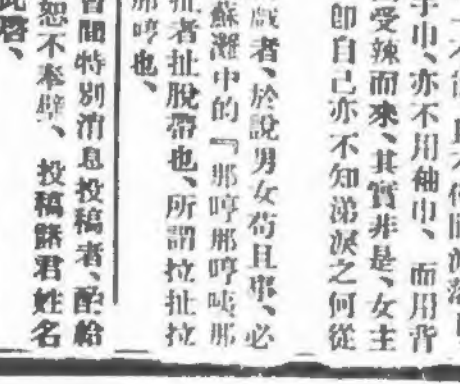 手巾、亦不用袖巾、而用背
受辣而來、其實非是、女主
卽自己亦不知涕淚之何從
戲者、於說男女苟且事、必
蘇灘中的『那哼那哼㖿那
扯者扯脫帶也、所謂拉扯拉
那哼也、
會間特別消息投稿者、酌給
恕不奉璧、投稿諸君姓名
此啓、